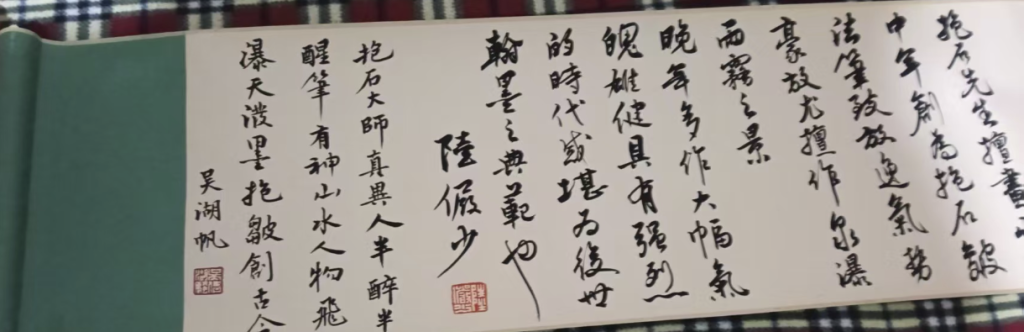 抱石先生擅畫山
中年創為抱石皴
法筆致放逸氣勢
豪放尤擅作泉瀑
雨霧之景
晚年多作大幅氣
魄雄健具有强烈
的時代感堪為後世
翰墨之典範也
陸儼少
抱石大師真異人半醉半
醒筆有神山水人物飛
瀑天潑墨抱皴創古今
吳湖帆